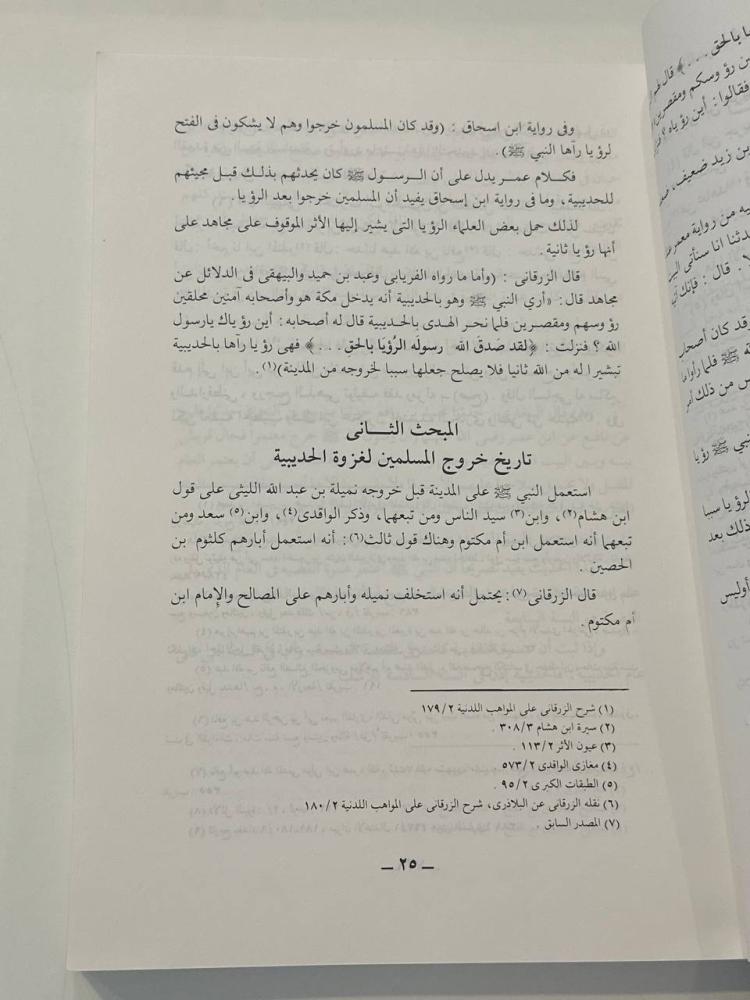 وفى رواية ابن اسحاق : (وقد كان المسلمون خرجوا وهم لا يشكون فى الفتح
لرؤيا رآها النبي ﷺ).
فكلام عمر يدل على أن الرسول ﷺ كان يحدثهم بذلك قبل مجيئهم
للحديبية، وما فى رواية ابن إسحاق يفيد أن المسلمين خرجوا بعد الرؤيا .
لذلك حمل بعض العلماء الرؤيا التى يشير إليها الأثر الموقوف على مجاهد على
أنها رؤيا ثانية .
قال الزرقانى : (وأما ما رواه الفريابى وعبد بن حميد والبيهقى فى الدلائل عن
مجاهد قال: «أري النبي ﷺ وهو بالحديبية أنه يدخل مكة هو وأصحابه آمنين محلقين
رؤوسهم ومقصرين فلما نحر الهدى بالحديبية قال له أصحابه: أين رؤياك يارسول
الله ؟ فنزلت : ﴿لقد صَدقَ الله رسولَه الرُؤيَا بالحق. . .﴾ فهى رؤيا رآها بالحديبية
تبشيرا له من الله ثانيا فلا يصلح جعلها سببا لخروجه من المدينة)(١).
المبحث الثانى
تاريخ خروج المسلمين لغزوة الحديبية
استعمل النبي ﷺ على المدينة قبل خروجه نميلة بن عبد الله الليثى على قول
ابن هشام(٢)، وابن(٣) سيد الناس ومن تبعهما، وذكر الواقدى(٤)، وابن(٥) سعد ومن
تبعهما أنه استعمل ابن أم مكتوم وهناك قول ثالث(٦): أنه استعمل أبارهم كلثوم بن
الحصين .
قال الزرقانى(٧): يحتمل أنه استخلف نميله وأبارهم على المصالح والإمام ابن
أم مكتوم.
(١) شرح الزرقانى على المواهب اللدنية ١٧٩/٢
(٢) سيرة ابن هشام ٣٠٨/٣ .
(٣) عيون الأثر ١١٣/٢ .
(٤) مغازى الواقدى ٥٧٣/٢
(٥) الطبقات الكبرى ٩٥/٢ .
(٦) نقله الزرقانى عن البلاذرى، شرح الزرقانى على المواهب اللدنية ١٨٠/٢
(٧) المصدر السابق .
— ٢٥ —